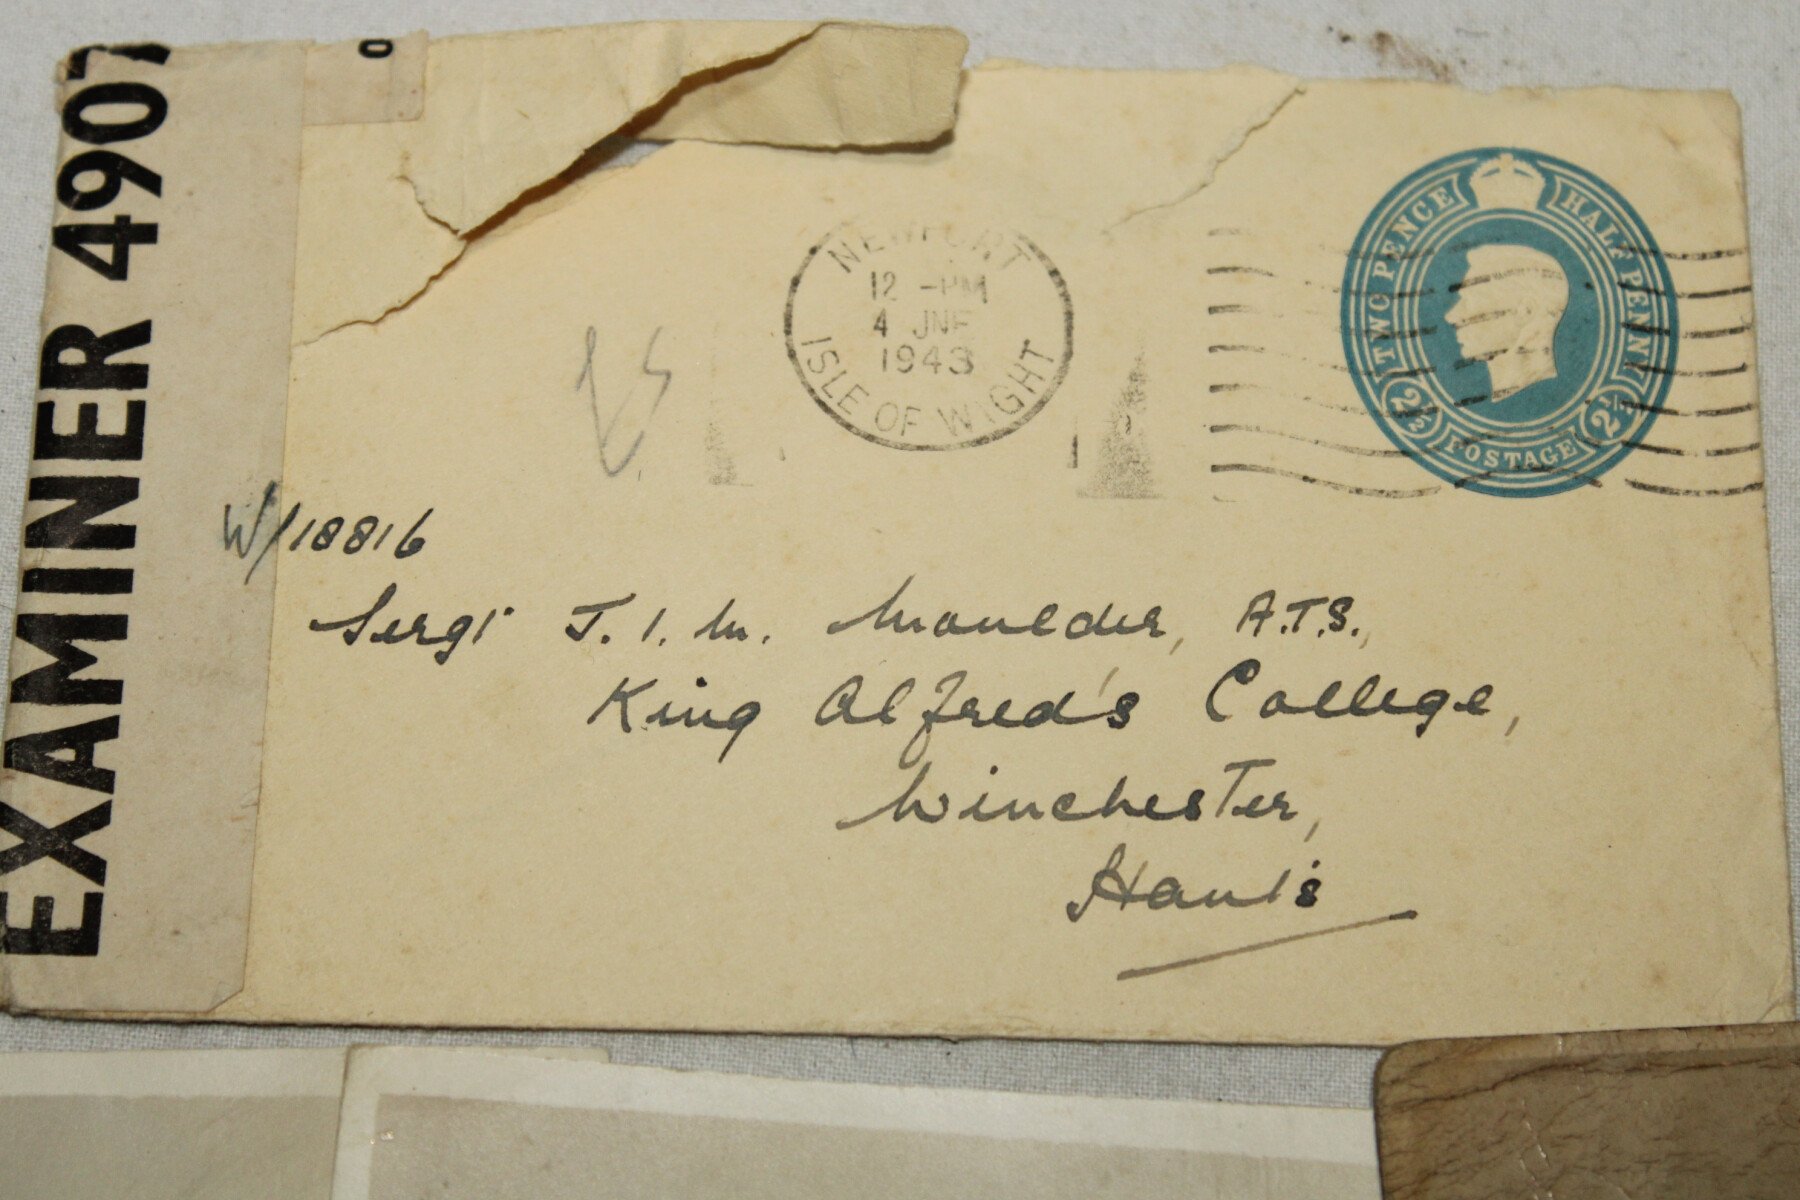 EXAMINER 4907
NEWPORT
12 -PM
4 JNE
1943
ISLE OF WIGHT
TWO PENCE HALF PENNY
2½ POSTAGE 2½
W/18816
Sergt J. I. M. Moulder, A.T.S.,
King Alfred's College,
Winchester,
Hants